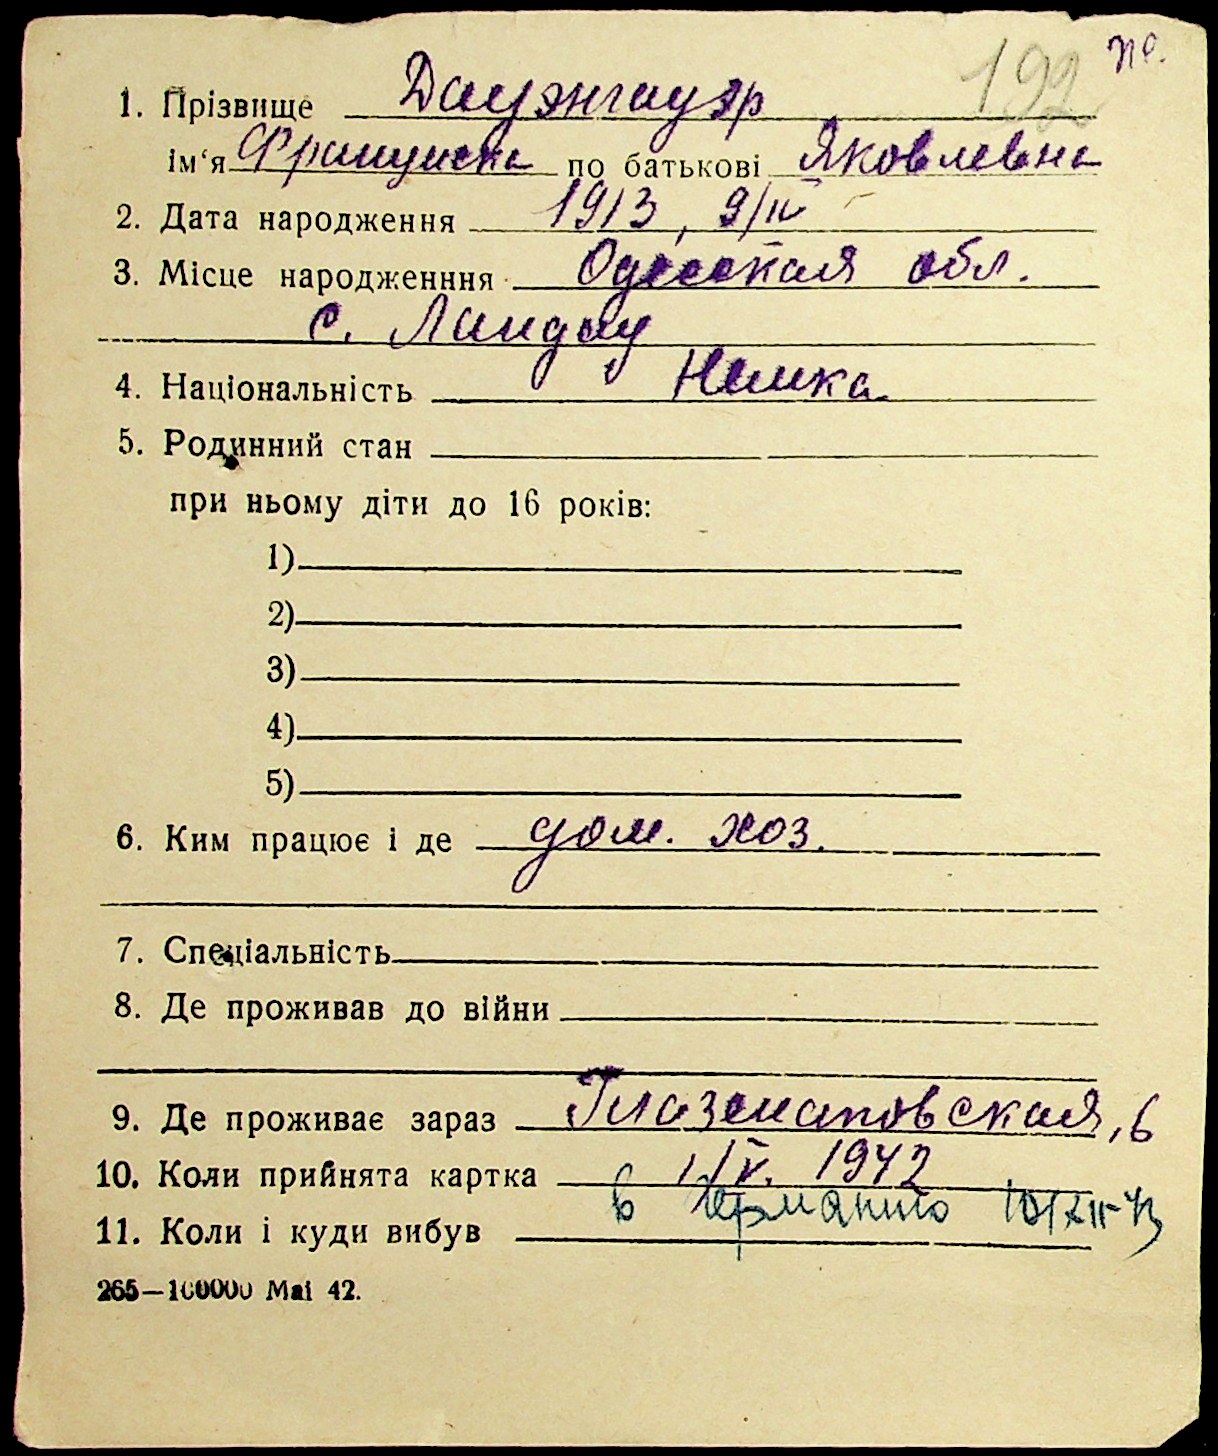 192 пе.
1. Прізвище Дауэнгауэр
ім‘я Франциска по батькові Яковлевна
2. Дата народження 1913, 9/IV
3. Місце народженння Одесская обл.
с. Ландау
4. Національність Немка
5. Родинний стан
при ньому діти до 16 років:
1)
2)
3)
4)
5)
6. Ким працює і де дом. хоз.
7. Спеціальність
8. Де проживав до війни
9. Де проживає зараз Глазенаповская, 6
10. Коли прийнята картка 1/V. 1942
11. Коли і куди вибув в Германию 10/XII-43
265—100000 Mai 42.